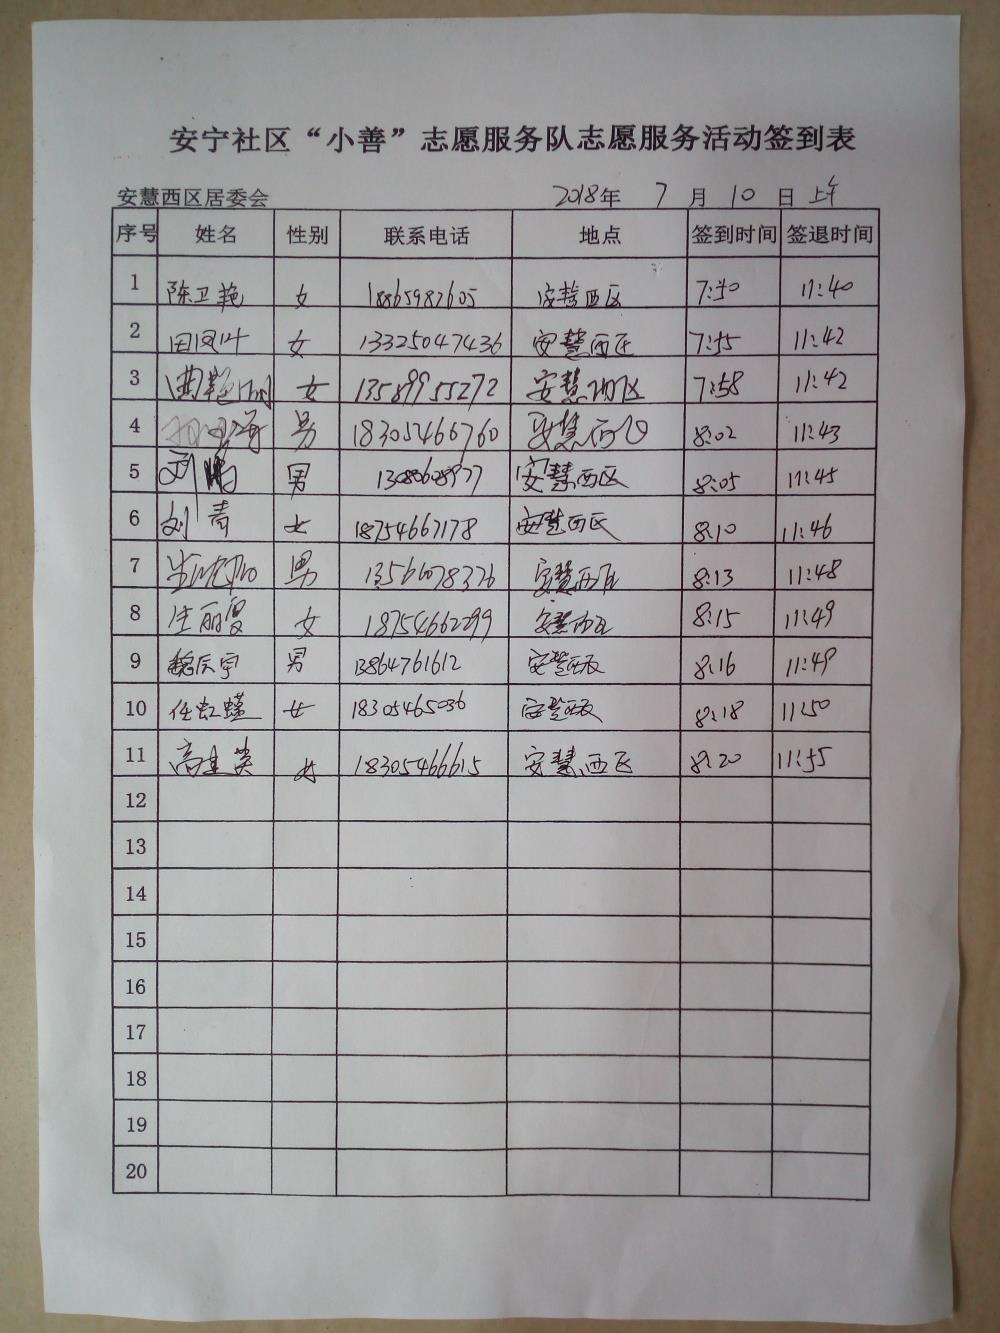 安宁社区“小善”志愿服务队志愿服务活动签到表
安慧西区居委会 2018年 7 月 10 日 上午
序号 姓名 性别 联系电话 地点 签到时间 签退时间
1 陈卫艳 女 18865987605 安慧西区 7:50 11:40
2 田凤叶 女 13325047436 安慧西区 7:55 11:42
3 女 13589955272 安慧西区 7:58 11:42
4 男 18305466760 安慧西区 8:02 11:43
5 刘鹏 男 13080608977 安慧西区 8:05 11:45
6 刘青 女 18754667178 安慧西区 8:10 11:46
7 男 安慧西区 8:13 11:48
8 生丽曼 女 18754662299 安慧西区 8:15 11:49
9 魏庆宇 男 13864761612 安慧西区 8:16 11:49
10 任虹瑾 女 18305465036 安慧西区 8:18 11:50
11 高建英 女 18305466615 安慧西区 8:20 11:55
12
13
14
15
16
17
18
19
20